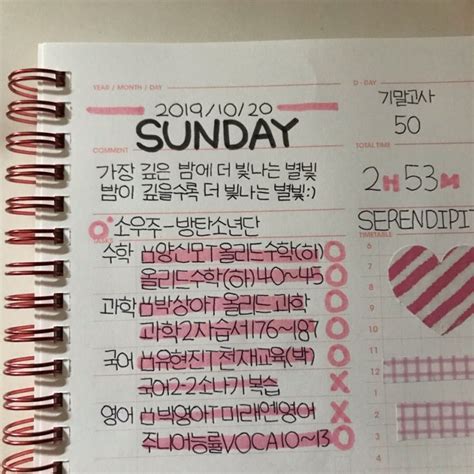 YEAR / MONTH / DAY
2019/10/20
SUNDAY
D-DAY
기말고사
50
COMMENT
가장 깊은 밤에 더 빛나는 별빛
밤이 깊을수록 더 빛나는 별빛:)
TOTAL TIME
2H 53M
TASKS
소우주-방탄소년단
수학 양신모T 올리드수학(하)
올리드수학(하)40~45
과학 박상아T 올리드 과학
과학2자습세176~187
국어 유현진T 전재교육(박)
국어2-2소나기 복습
영어 박영아T 미래엔영어
주니어능률VOCA10~13
SERENDIPIT
TIMETABLE
6
7
8
9
10
11
12
1
2
3
4